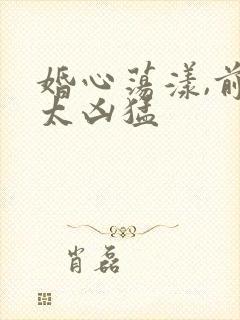 婚心荡漾,前
太凶猛
肖磊